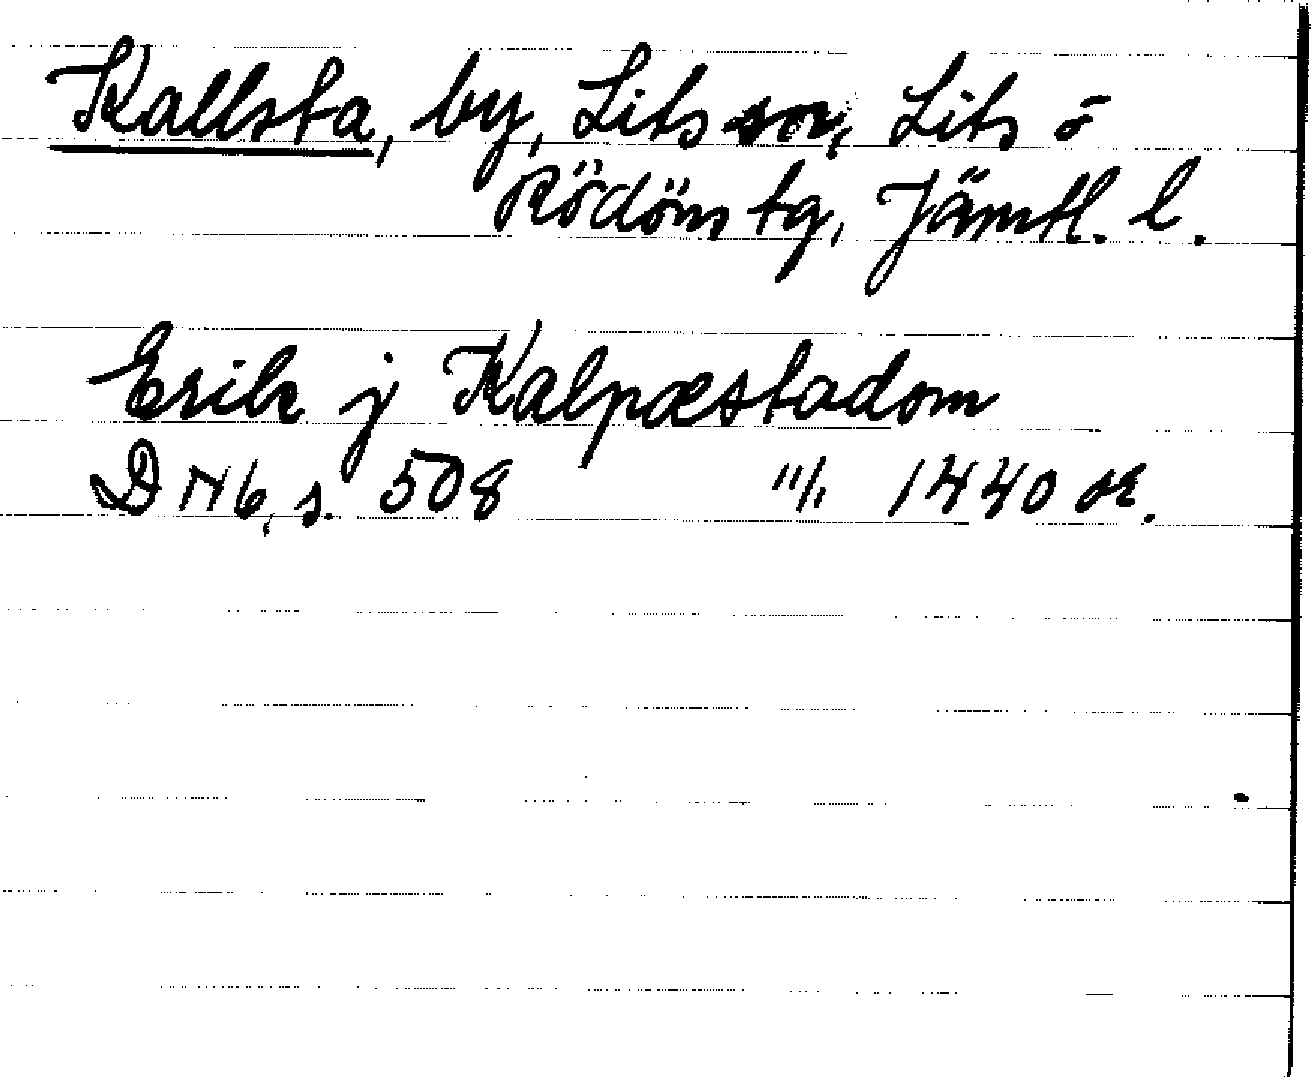 Kallsta, by, Lits sn, Lits o
Rödöns tg, Jämtl. l.
Erik j Kalpæstadom
DN 16, s. 508 11/1 1440 or.